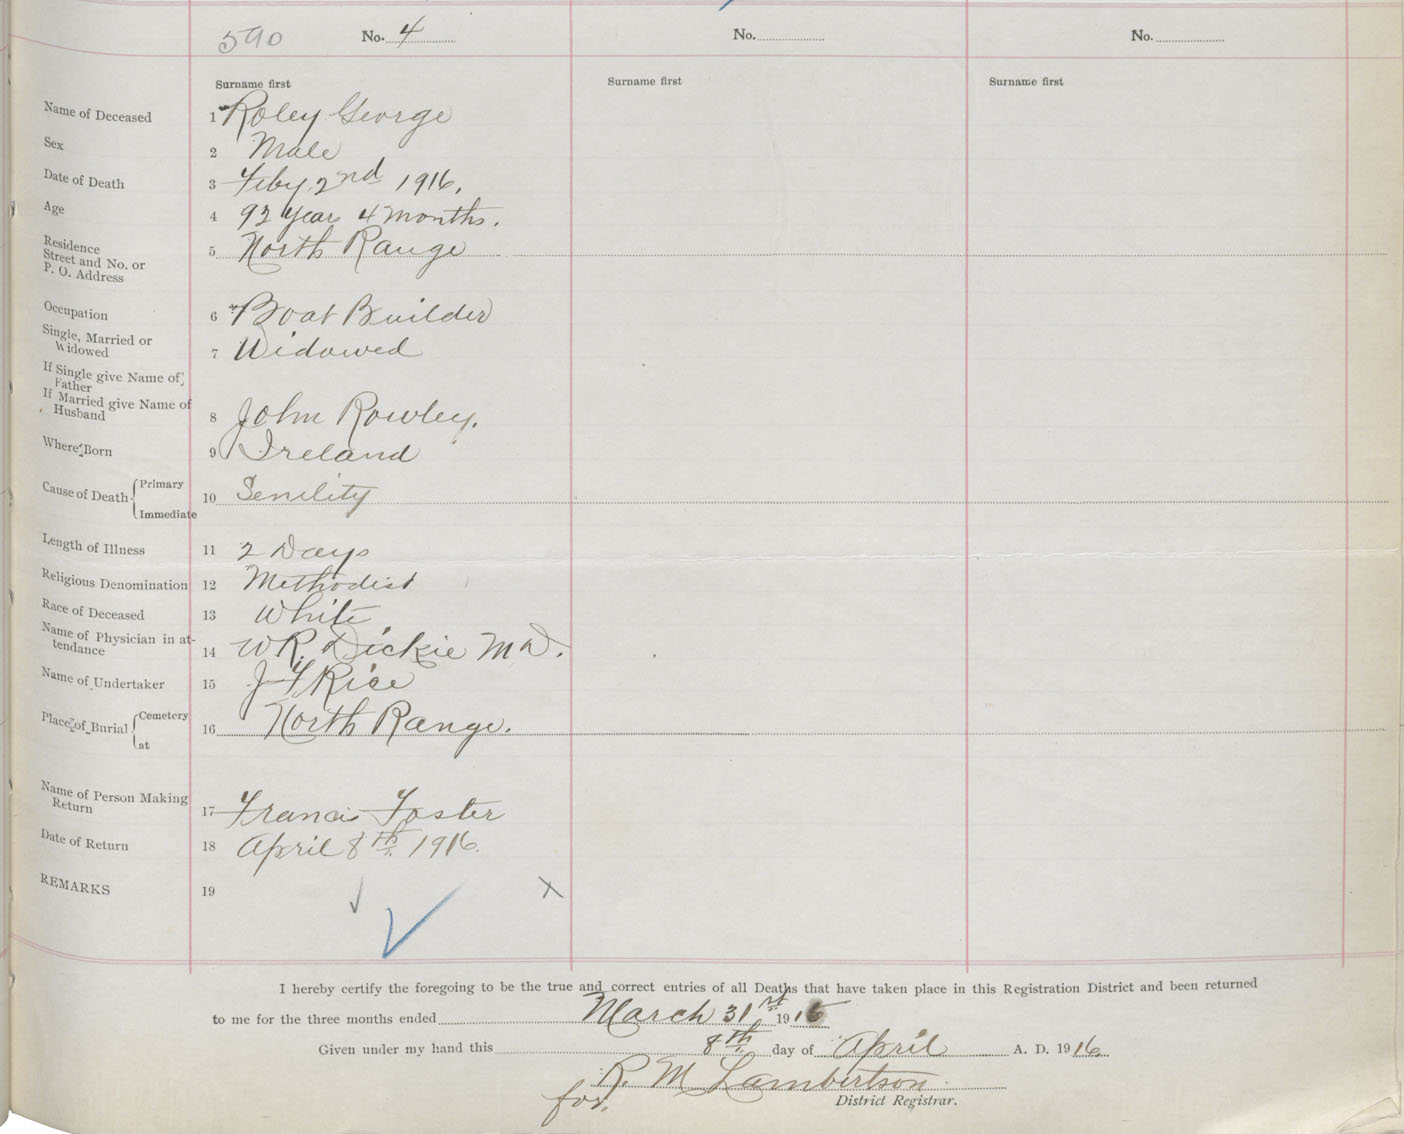 590 No. 4 No. No.
Surname first Surname first Surname first
Name of Deceased 1 Roley George
Sex 2 Male
Date of Death 3 Feby 2nd 1916.
Age 4 92 years 4 months.
Residence
Street and No. or
P. O. Address 5 North Range
Occupation 6 Boat Builder
Single, Married or
Widowed 7 Widowed
If Single give Name of
Father
If Married give Name of
Husband 8 John Rowley.
Where Born 9 Ireland
Cause of Death Primary
10 Senility
Immediate
Length of Illness 11 2 Days
Religious Denomination 12 Methodist
Race of Deceased 13 White
Name of Physician in at-
tendance 14 W R. Dickie M D.
Name of Undertaker 15 J F Rice
Place of Burial Cemetery
16 North Range.
at
Name of Person Making
Return 17 Francis Foster
Date of Return 18 April 8th. 1916.
REMARKS 19
I hereby certify the foregoing to be the true and correct entries of all Deaths that have taken place in this Registration District and been returned
to me for the three months ended March 31st 1916
Given under my hand this 8th. day of April A. D. 1916.
R. M Lambertson
for. District Registrar.